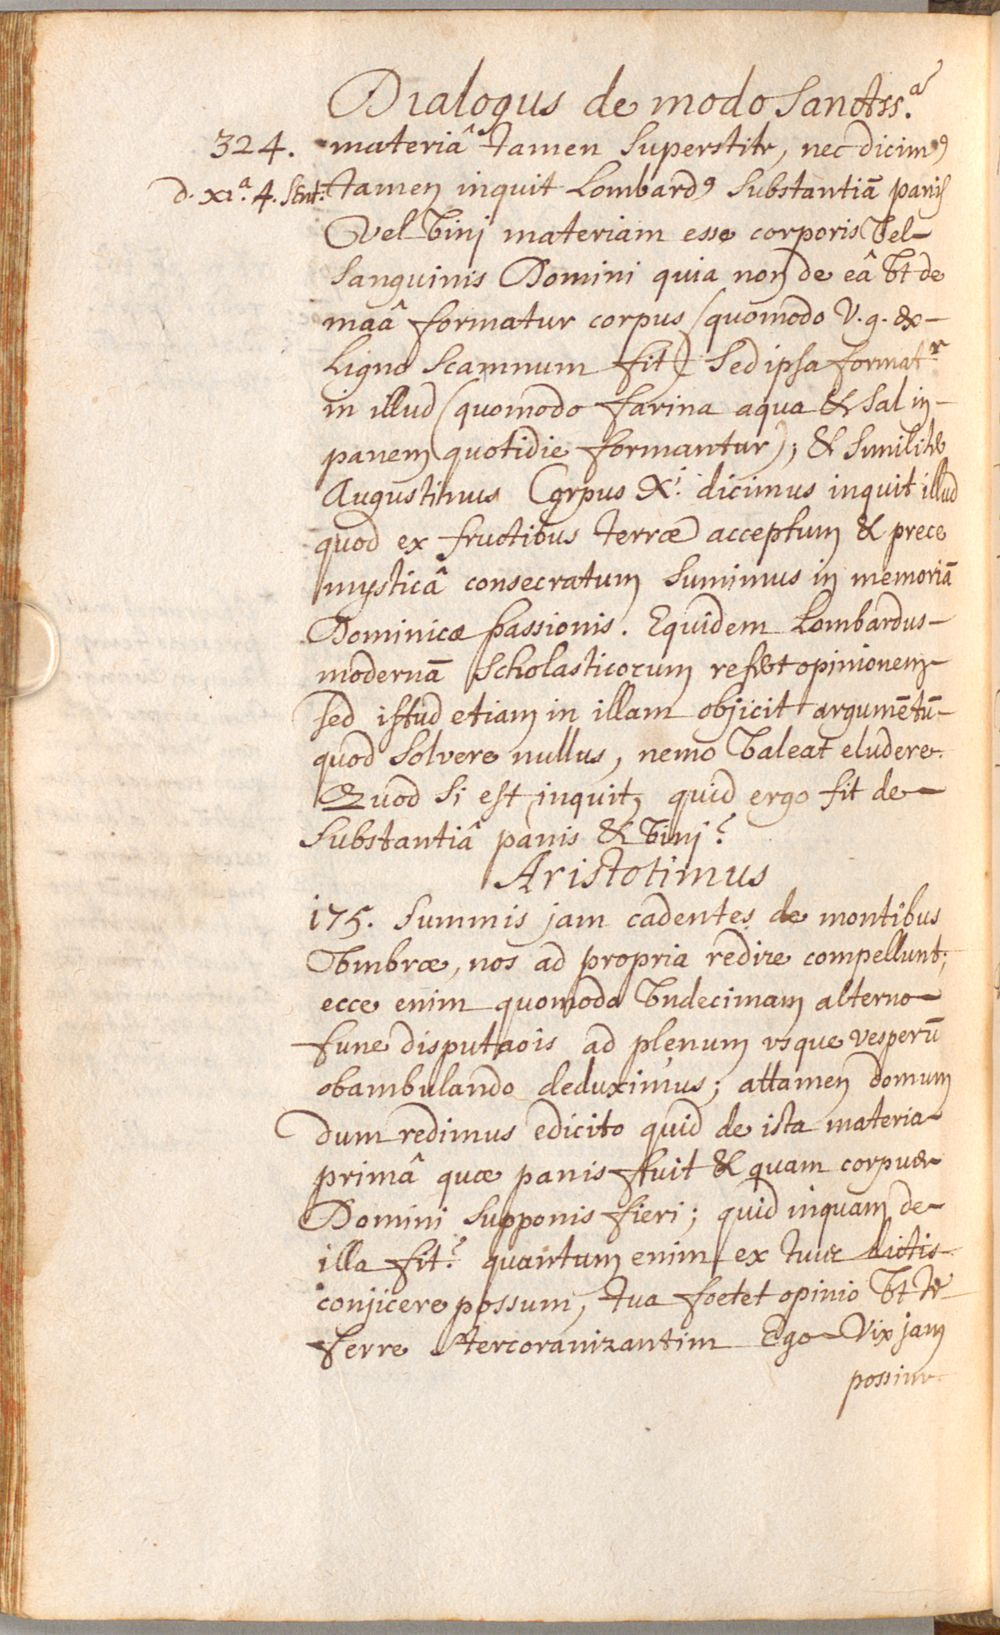 Dialogus de modo Sanctss.ᵃ
324.
materiâ tamen Superstite, nec dicimꝰ
d. XIᵃ. 4. Sent.
tamen inquit Lombardꝰ Substantiā panis
Vel Vini materiam esse corporis Vel-
Sanguinis Domini quia non de eâ Vt de
maâ formatur corpus (quomodo V.g. ex-
Ligno Scamnum fit) Sed ipsa formatʳ
in illud (quomodo farina aqua & Sal in-
panem quotidie formantur); & Similiter
Augustinus Corpus Xⁱ. dicimus inquit illud
quod ex fructibus terræ acceptum & prece
mysticâ consecratum Sumimus in memoriā
Dominicæ passionis. Equidem Lombardus-
modernā Scholasticorum refert opinionem-
sed istud etiam in illam objicit argumētū-
quod Solvere nullus, nemo Valeat eludere.
Quod Si est inquit, quid ergo fit de-
Substantiâ panis & Vini?
Aristotimus
175. Summis jam cadentes de montibus
Vmbræ, nos ad propria redire compellunt;
ecce enim quomodo Vndecimam alterno-
fune disputaois ad plenum vsque vesperū
obambulando deduximus; attamen domum
dum redimus edicito quid de ista materia-
primâ quæ panis fuit & quam corpus-
Domini Supponis fieri; quid inquam de-
illa fit? quantum enim ex tuis dictis-
conjicere possum, tua foetet opinio Vt te
ferre Stercoranizantim Ego-Vix jam
possim-